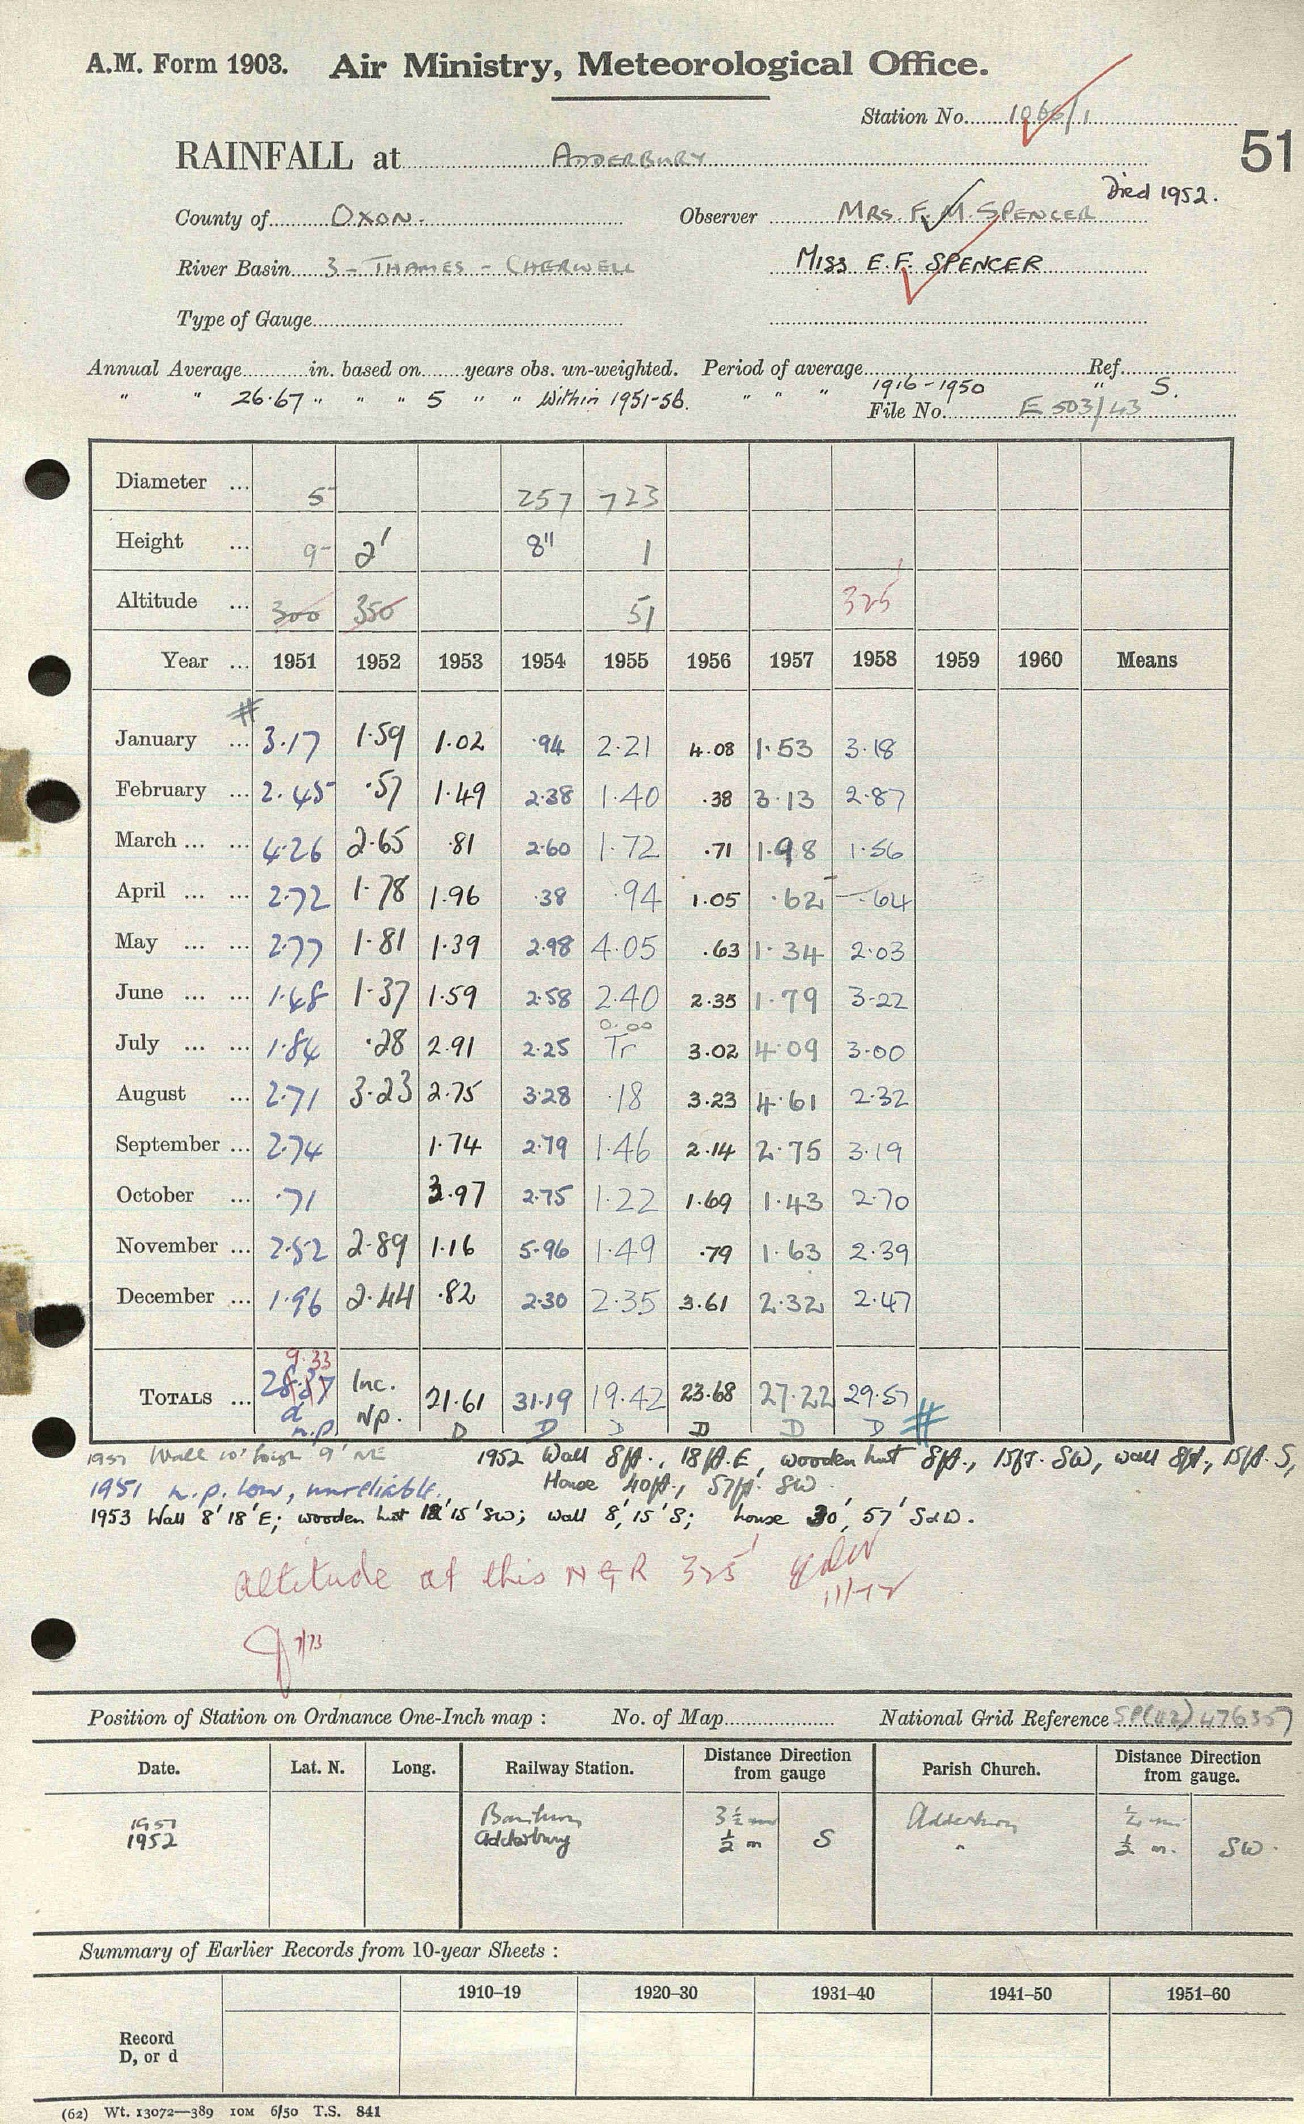 A.M. Form 1903. Air Ministry, Meteorological Office.
Station No. 1066/1
51
RAINFALL at ADDERBURY
Died 1952.
County of OXON. Observer MRS. F. M. SPENCER
River Basin 3 - THAMES - CHERWELL MISS E.F. SPENCER
Type of Gauge
Annual Average in. based on years obs. un-weighted. Period of average Ref.
" " 26.67 " " " 5 " " Within 1951-58. " " " 1916-1950 " S.
File No. E 503/43
Diameter ... 5 257 723
Height ... 9 2' 8" 1
Altitude ... 300 350 51 325'
Year ... 1951 1952 1953 1954 1955 1956 1957 1958 1959 1960 Means
#
January ... 3.17 1.59 1.02 .94 2.21 4.08 1.53 3.18
February ... 2.45 .57 1.49 2.38 1.40 .38 3.13 2.87
March ... ... 4.26 2.65 .81 2.60 1.72 .71 1.98 1.56
April ... ... 2.72 1.78 1.96 .38 .94 1.05 .62 .64
May ... ... 2.77 1.81 1.39 2.98 4.05 .63 1.34 2.03
June ... ... 1.48 1.37 1.59 2.58 2.40 2.35 1.79 3.22
0.00
July ... ... 1.84 .28 2.91 2.25 Tr 3.02 4.09 3.00
August ... 2.71 3.23 2.75 3.28 .18 3.23 4.61 2.32
September ... 2.74 1.74 2.79 1.46 2.14 2.75 3.19
October ... .71 3.97 2.75 1.22 1.69 1.43 2.70
November ... 2.52 2.89 1.16 5.96 1.49 .79 1.63 2.39
December ... 1.96 2.44 .82 2.30 2.35 3.61 2.32 2.47
9.33
TOTALS ... 28.87 Inc. 21.61 31.19 19.42 23.68 27.22 29.57 #
d n.p. N.p. D D D D D D
1951 Wall 10' high 9' NE 1952 Wall 8ft., 18ft. E, wooden hut 8ft., 15ft. SW, wall 8ft., 15ft. S,
1951 n.p. low, unreliable. House 40ft., 57ft. SW
1953 Wall 8' 18' E; wooden hut 15' SW; wall 8', 15' S; house 30', 57'
Altitude at this NGR 325' 11/72
7/73
Position of Station on Ordnance One-Inch map : No. of Map National Grid Reference SP(42) 476357
Date. Lat. N. Long. Railway Station. Distance Direction from gauge Parish Church. Distance Direction from gauge.
1951 Banbury 3½ m Adderbury ¼ m
1952 Adderbury ½ m S " ½ m. SW.
Summary of Earlier Records from 10-year Sheets :
1910–19 1920–30 1931–40 1941–50 1951–60
Record
D, or d
(62) Wt. 13072—389 10M 6/50 T.S. 841